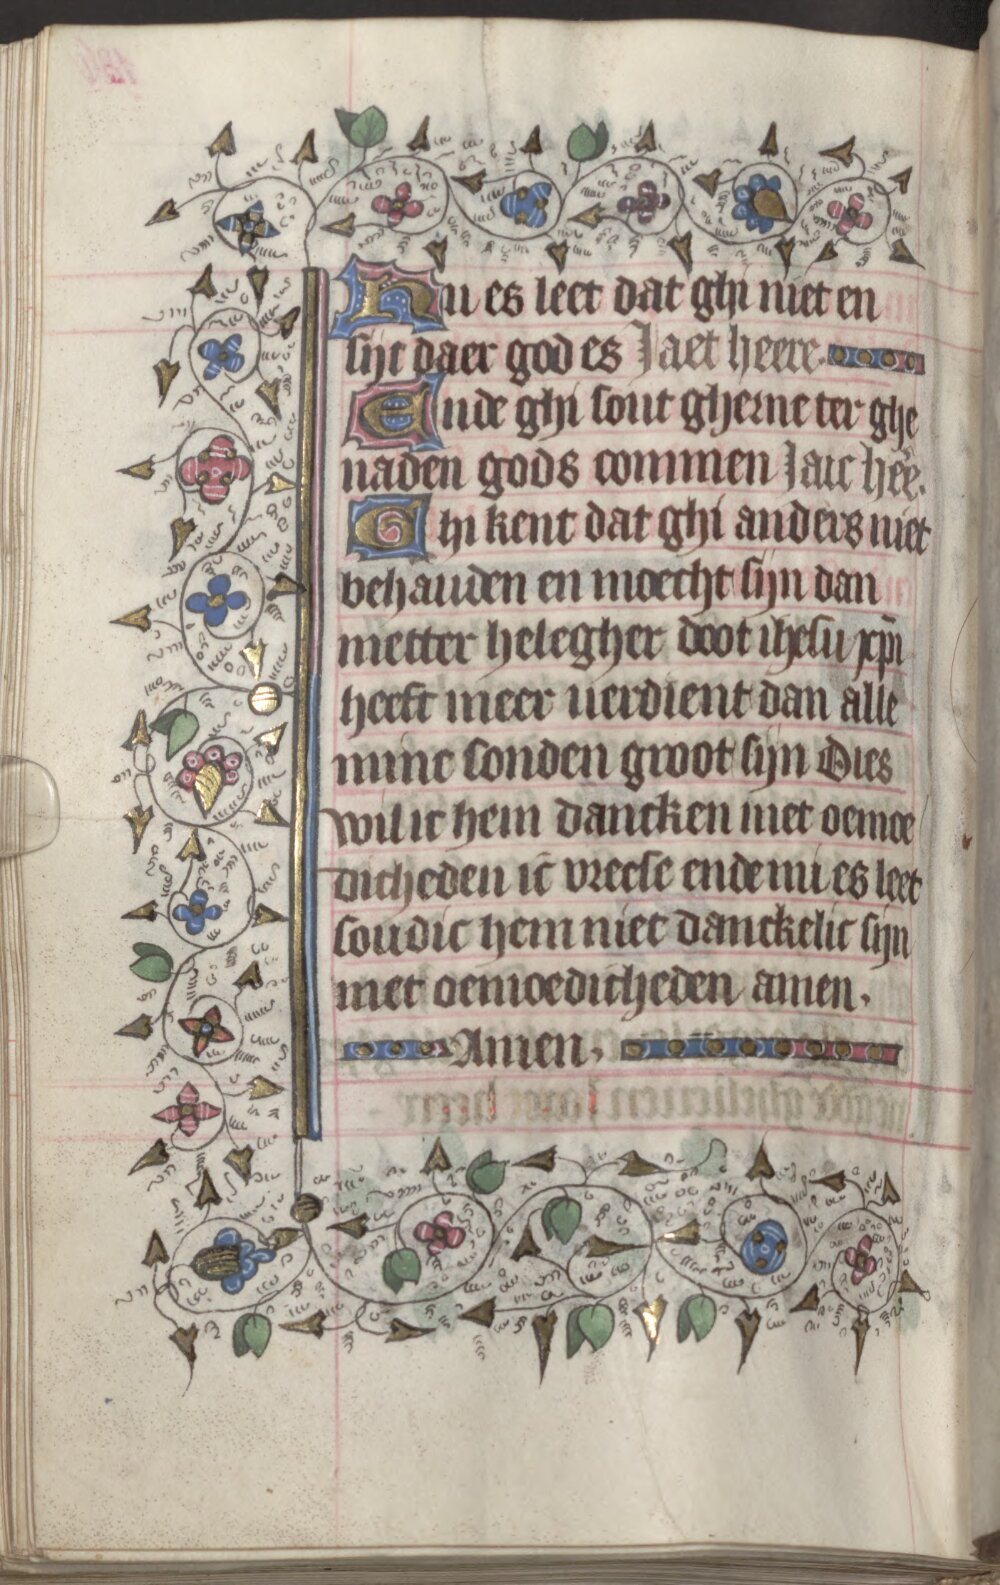 Hu es leet dat ghi niet en
sijt daer god es Jaet heere.
Ende ghi sout gherne ter ghe
naden gods commen Jaic heē.
Ghi kent dat ghi anders niet
behauden en moecht sijn dan
metter helegher doot ihesu xp̄i
heeft meer verdient dan alle
mine sonden groot sijn Dies
wil ic hem dancken met oemoe
dicheden ic̄ vreese ende mi es leet
soudic hem niet danckelic sijn
met oemoedicheden amen.
Amen.